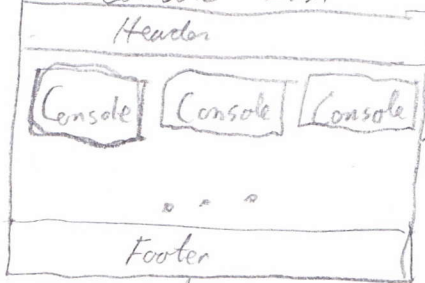 Header
Console Console Console
Footer